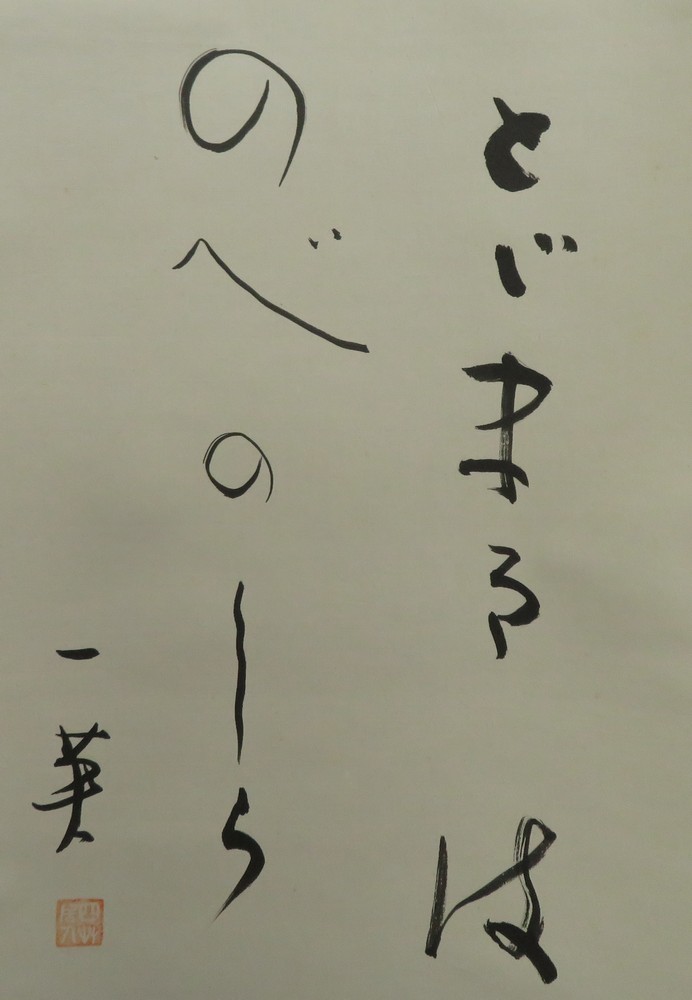 とじまるは
のべのしら
一英